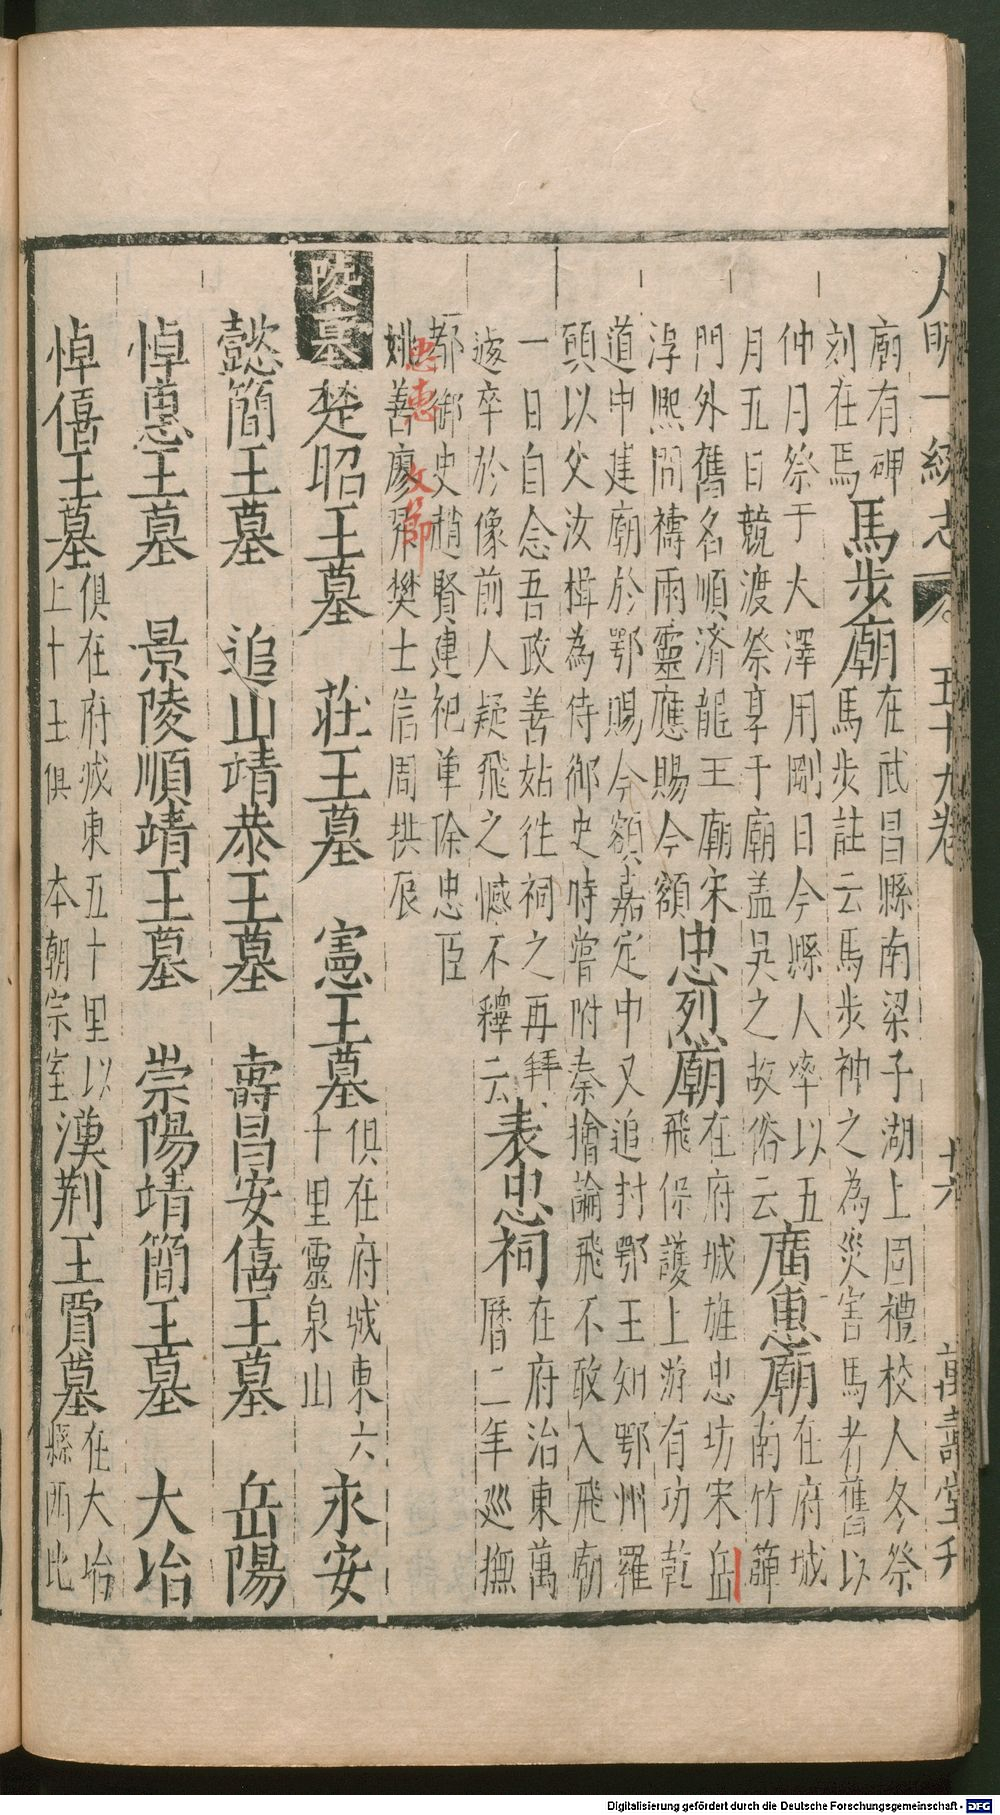 大明一統志 五十九卷 十六 萬壽堂刊
廟有碑
刻在焉
馬步廟
在武昌縣南梁子湖上周禮校人冬祭
馬步註云馬步神之為災害馬者舊以
仲月祭于大澤用剛日今縣人率以五
月五日競渡祭享于廟盖吳之故俗云
廣惠廟
在府城
南竹簰
門外舊名順済龍王廟宋
淳熈間禱雨靈應賜今額
忠烈廟
在府城旌忠坊宋岳
飛保護上游有功乾
道中建廟於鄂賜今額嘉定中又追封鄂王知鄂州羅
頭以父汝楫為侍御史時嘗附秦擒論飛不敢入飛廟
一日自念吾政善姑徃祠之再拜
遂卒於像前人疑飛之憾不釋云
表忠祠
在府治東萬
曆二年巡撫
都御史趙賢建祀单除忠臣
姚善廖昇樊士信周拱辰
忠惠 文節
陵墓 楚昭王墓 莊王墓 憲王墓
俱在府城東六
十里靈泉山
永安
懿簡王墓 追山靖恭王墓 壽昌安僖王墓 岳陽
悼惠王墓 景陵順靖王墓 崇陽靖簡王墓 大冶
悼僖王墓
俱在府城東五十里以
上十王俱 本朝宗室
漢荆王賈墓
在大冶
縣西北
Digitalisierung gefördert durch die Deutsche Forschungsgemeinschaft - DFG